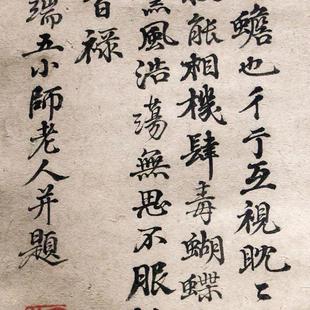 蟾也彳亍互視眈〻
能相機肆毒蝴蝶
風浩蕩無思不服
百祿
端五小師老人并題